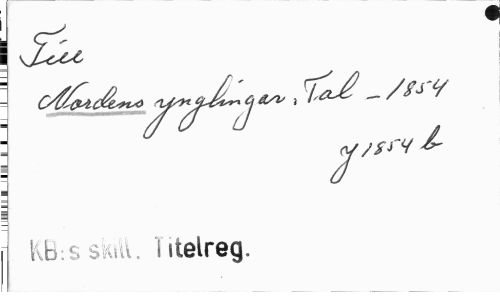 Till
Nordens ynglingar. Tal – 1854
y 1854 b
KB:s skill. Titelreg.